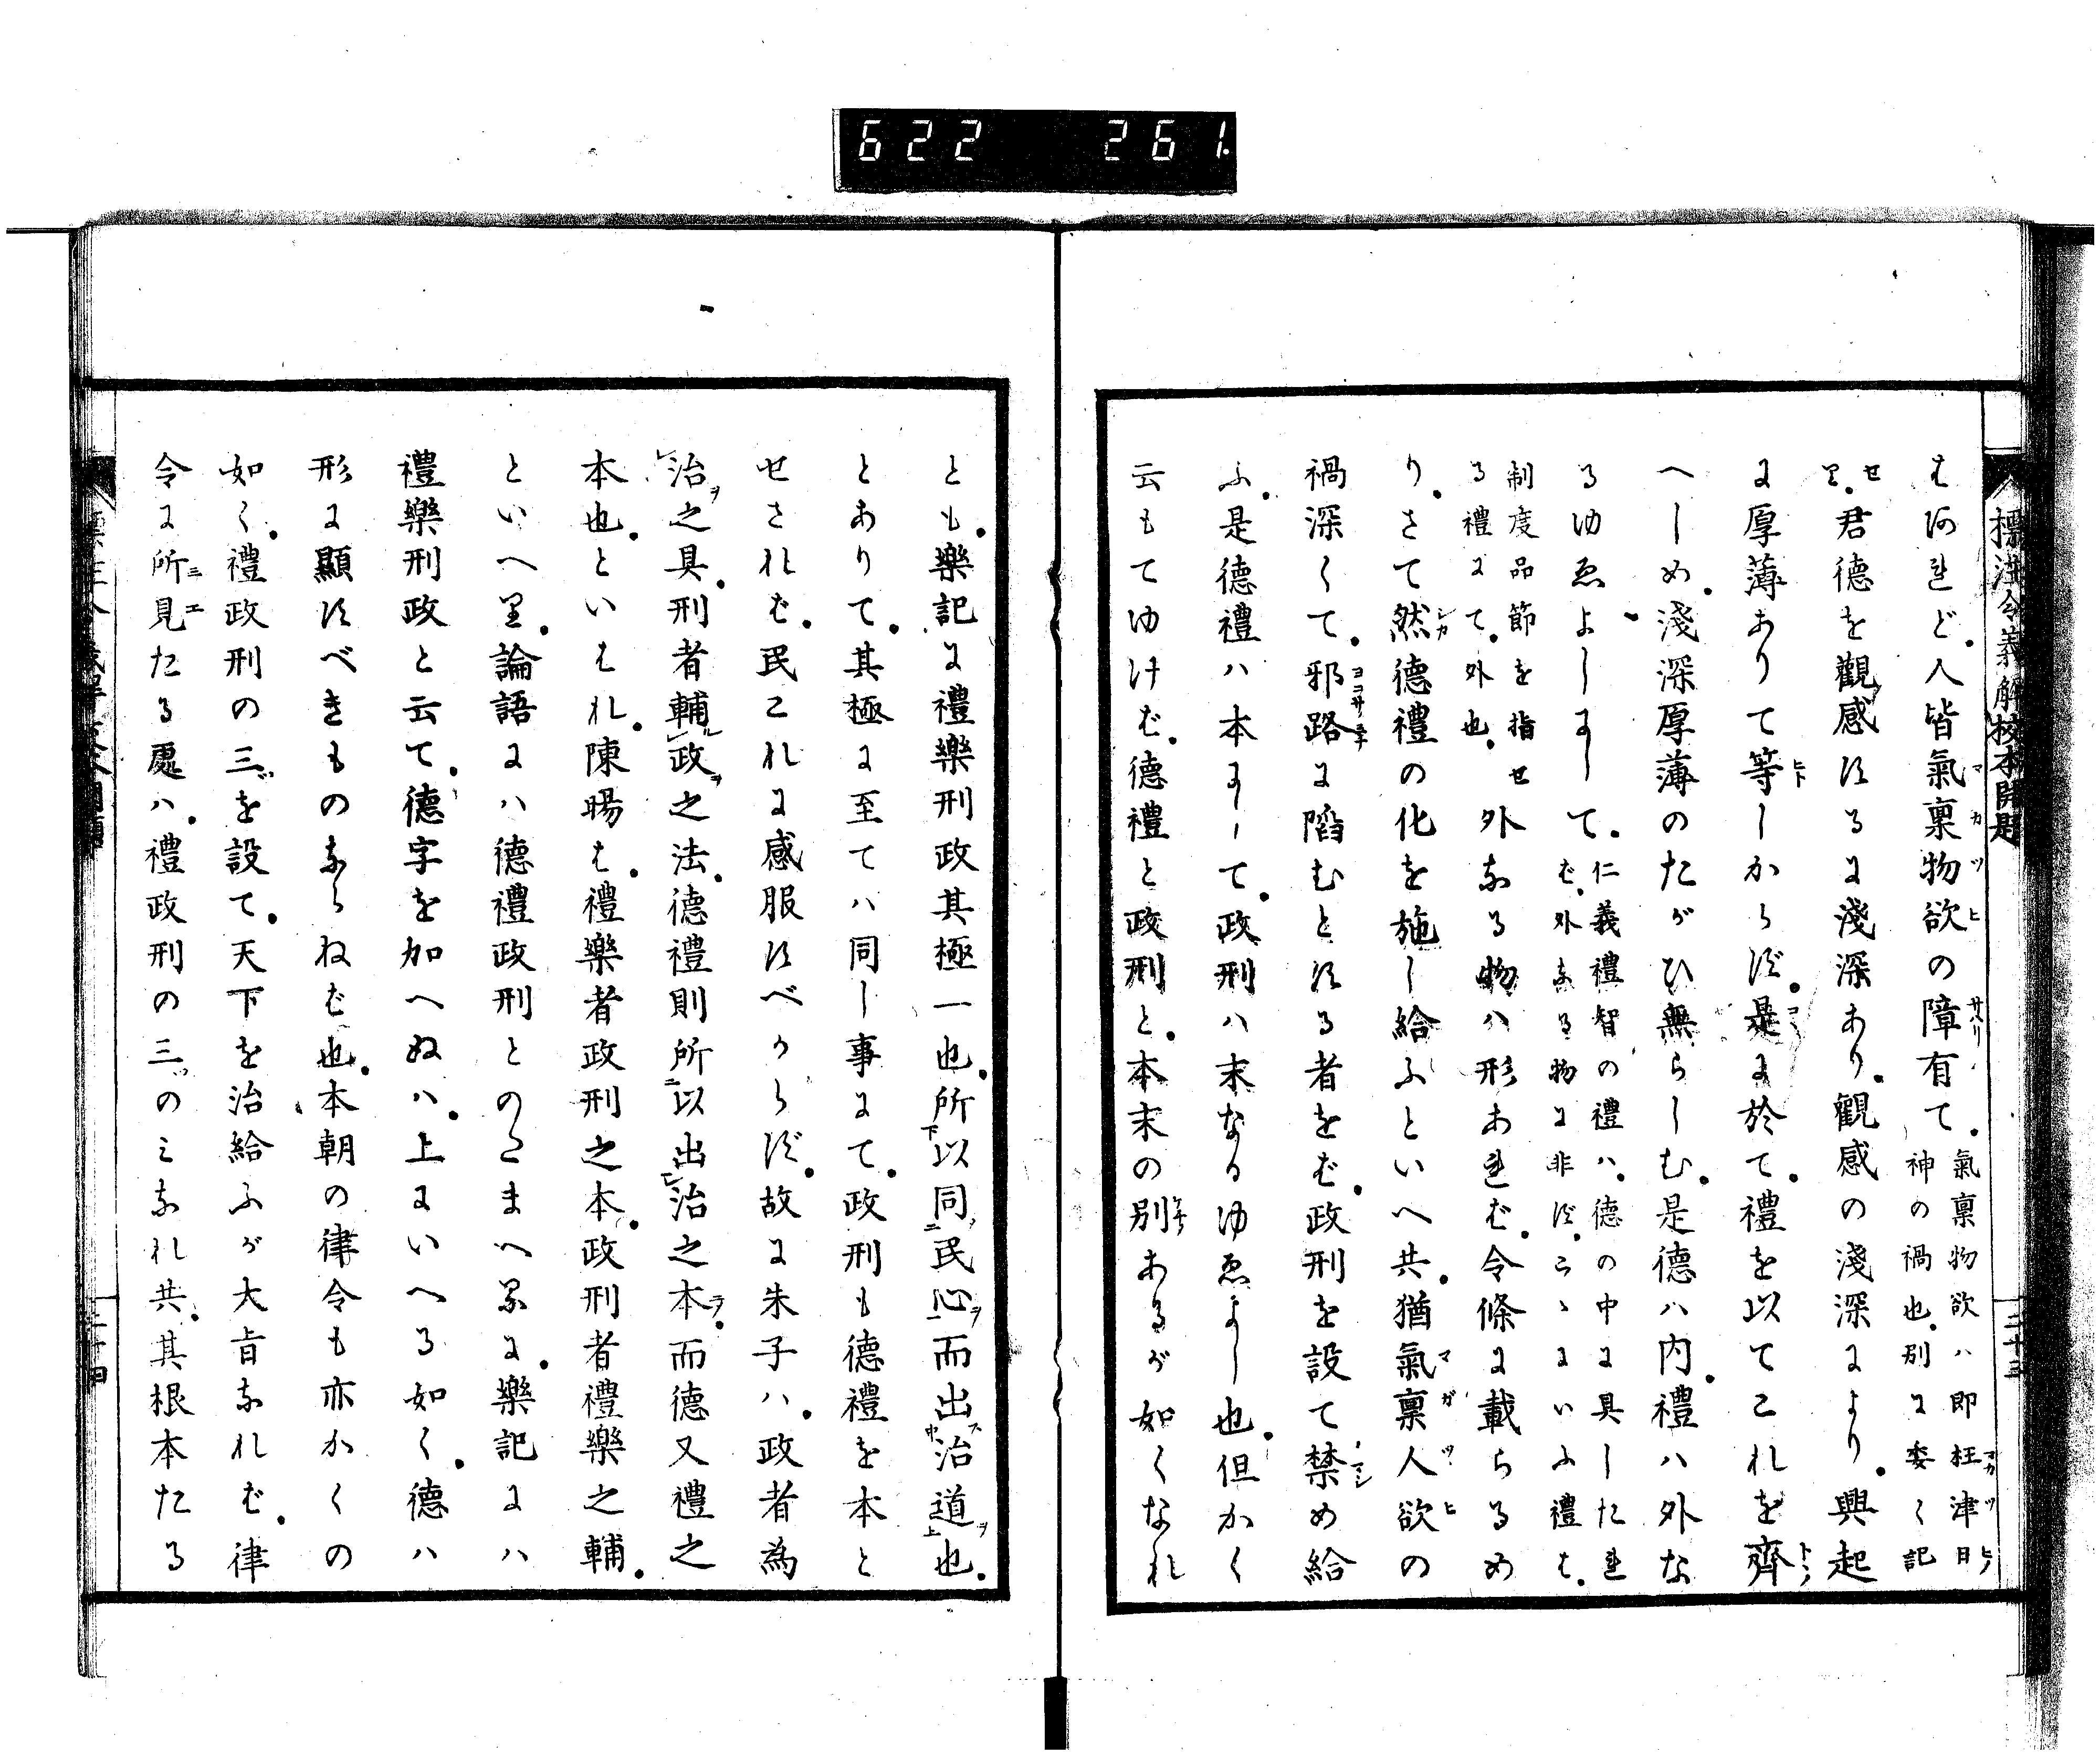 622 261
標注令義解校本開題
はあれど、人皆氣稟物欲の障有て、氣稟物欲ハ即枉津日
神の禍也、別に委く記
せり、君德を觀感するに淺深あり、觀感の淺深により、興起
に厚薄ありて等しからず、是に於て、禮を以てこれを齊
へしめ、淺深厚薄のたがひ無らしむ、是德ハ内、禮ハ外な
るゆゑよしにして、仁義禮智の禮ハ、德の中に具したれ
ば、外なる物に非ず、こゝにいふ禮は、
制度品節を指せ
る禮にて、外也、外なる物ハ形あれば、令條に載らるめ
り、さて然德禮の化を施し給ふといへ共、猶氣稟人欲の
禍深くて、邪路に陷むとする者をば、政刑を設て禁め給
ふ、是德禮ハ本にして、政刑ハ末なるゆゑよし也、但かく
云もてゆけば、德禮と政刑と、本末の別あるが如くなれ
とも、樂記に禮樂刑政其極一也、所以同民心而出治道也、
とありて、其極に至てハ同し事にて、政刑も德禮を本と
せされば、民これに感服すべからず、故に朱子ハ、政者為
治之具、刑者輔政之法、德禮則所以出治之本、而德又禮之
本也、といはれ、陳暘は、禮樂者政刑之本、政刑者禮樂之輔、
といへり、論語にハ德禮政刑とのたまへるに、樂記にハ
禮樂刑政と云て、德字を加へぬハ、上にいへる如く、德ハ
形に顯すべきものならねば也、本朝の律令も亦かくの
如く、禮政刑の三を設て、天下を治給ふが大旨なれば、律
令に所見たる處ハ、禮政刑の三のみなれ共、其根本たる